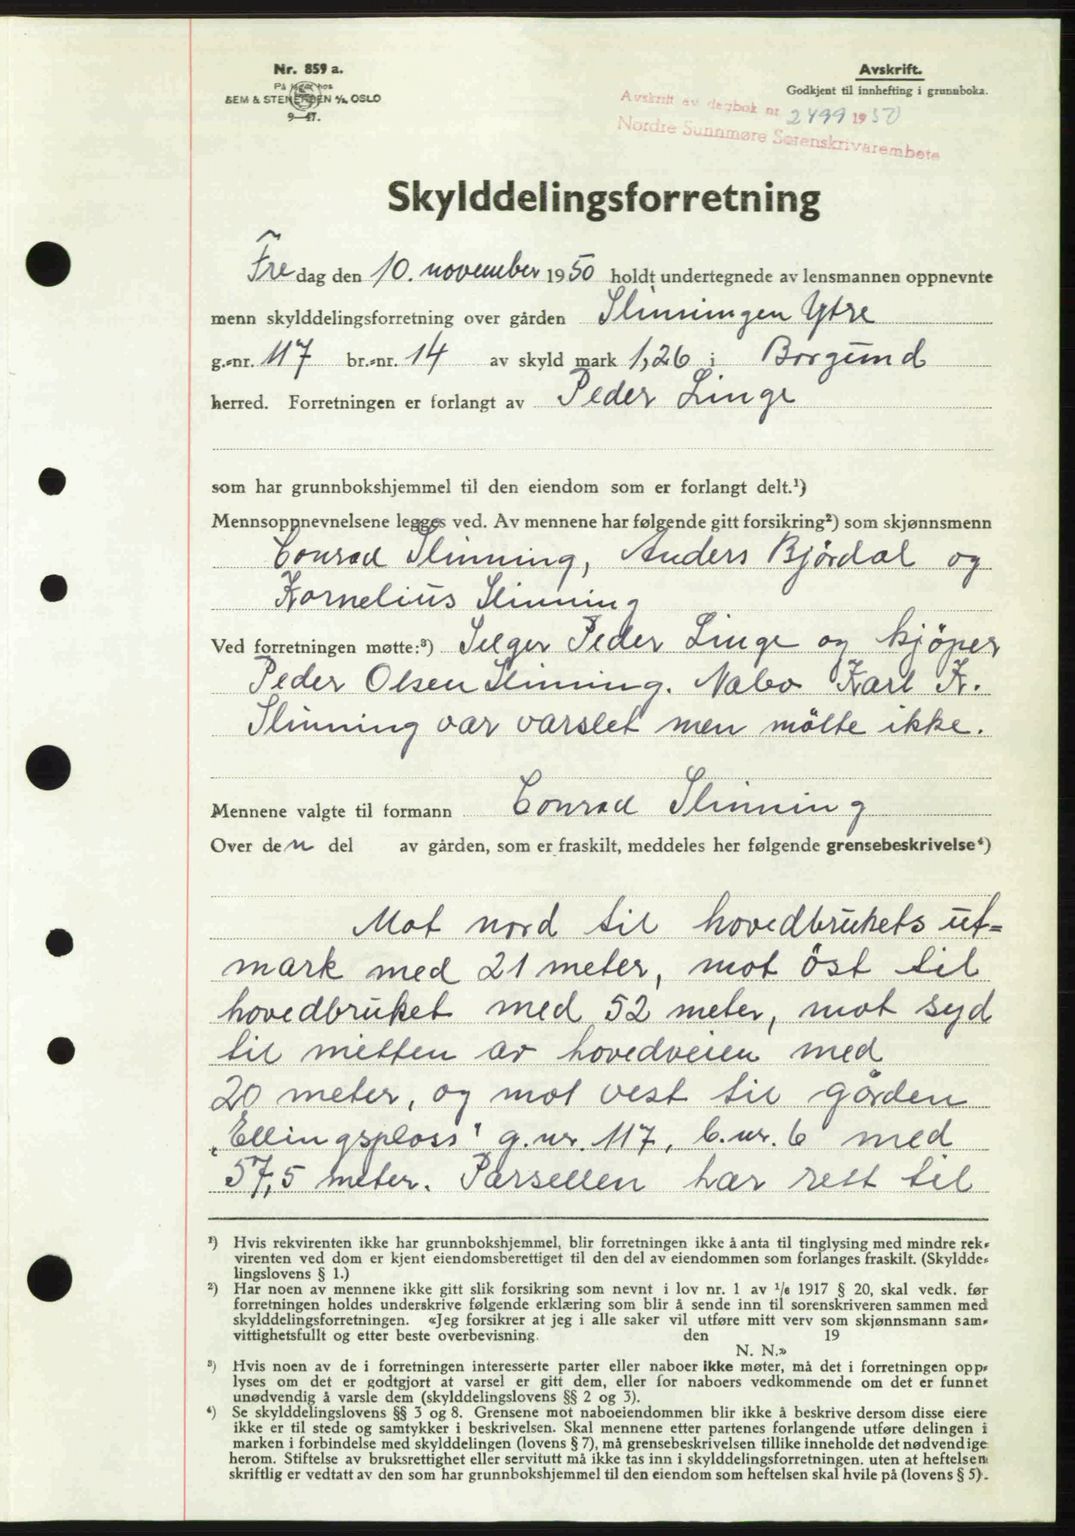 Nr. 859 a.
På lager hos
SEM & STENERSEN A/S, OSLO
9—47.
Avskrift.
Godkjent til innhefting i grunnboka.
Avskrift av dagbok nr 2499 1950
Nordre Sunnmøre Sorenskrivarembete
Skylddelingsforretning
Fredag den 10. november 1950 holdt undertegnede av lensmannen oppnevnte
menn skylddelingsforretning over gården Slinningen Ytre
g.-nr. 117 br.-nr. 14 av skyld mark 1,26 i Borgund
herred. Forretningen er forlangt av Peder Linge
som har grunnbokshjemmel til den eiendom som er forlangt delt.¹)
Mennsoppnevnelsene legges ved. Av mennene har følgende gitt forsikring²) som skjønnsmenn
Conrad Slinning, Anders Björdal og
Kornelius Slinning
Ved forretningen møtte:³) Selger Peder Linge og kjöper
Peder Olsen Slinning. Nabo Karl K.
Slinning var varslet men mötte ikke.
Mennene valgte til formann Conrad Slinning
Over den del av gården, som er fraskilt, meddeles her følgende grensebeskrivelse⁴)
Mot nord til hovedbrukets ut=
mark med 21 meter, mot öst til
hovedbruket med 52 meter, mot syd
til mitten av hovedveien med
20 meter, og mot vest til gården
„Ellingsploss" g.nr. 117, b.nr. 6 med
57,5 meter. Parsellen har rett til
¹) Hvis rekvirenten ikke har grunnbokshjemmel, blir forretningen ikke å anta til tinglysing med mindre rek-
virenten ved dom er kjent eiendomsberettiget til den del av eiendommen som forlanges fraskilt. (Skyldde-
lingslovens § 1.)
²) Har noen av mennene ikke gitt slik forsikring som nevnt i lov nr. 1 av 1/6 1917 § 20, skal vedk. før
forretningen holdes underskrive følgende erklæring som blir å sende inn til sorenskriveren sammen med
skylddelingsforretningen. «Jeg forsikrer at jeg i alle saker vil utføre mitt verv som skjønnsmann sam-
vittighetsfullt og etter beste overbevisning. den 19
N. N.»
³) Hvis noen av de i forretningen interesserte parter eller naboer ikke møter, må det i forretningen opp-
lyses om det er godtgjort at varsel er gitt dem, eller for naboers vedkommende om det er funnet
unødvendig å varsle dem (skylddelingslovens §§ 2 og 3).
⁴) Se skylddelingslovens §§ 3 og 8. Grensene mot naboeiendommen blir ikke å beskrive dersom disse eiere
ikke er til stede og samtykker i beskrivelsen. Skal mennene etter partenes forlangende utføre delingen i
marken i forbindelse med skylddelingen (lovens § 7), må grensebeskrivelsen tillike inneholde det nødvendige
herom. Stiftelse av bruksrettighet eller servitutt må ikke tas inn i skylddelingsforretningen. uten at heftelsen
skriftlig er vedtatt av den som har grunnbokshjemmel til den eiendom som heftelsen skal hvile på (lovens § 5).